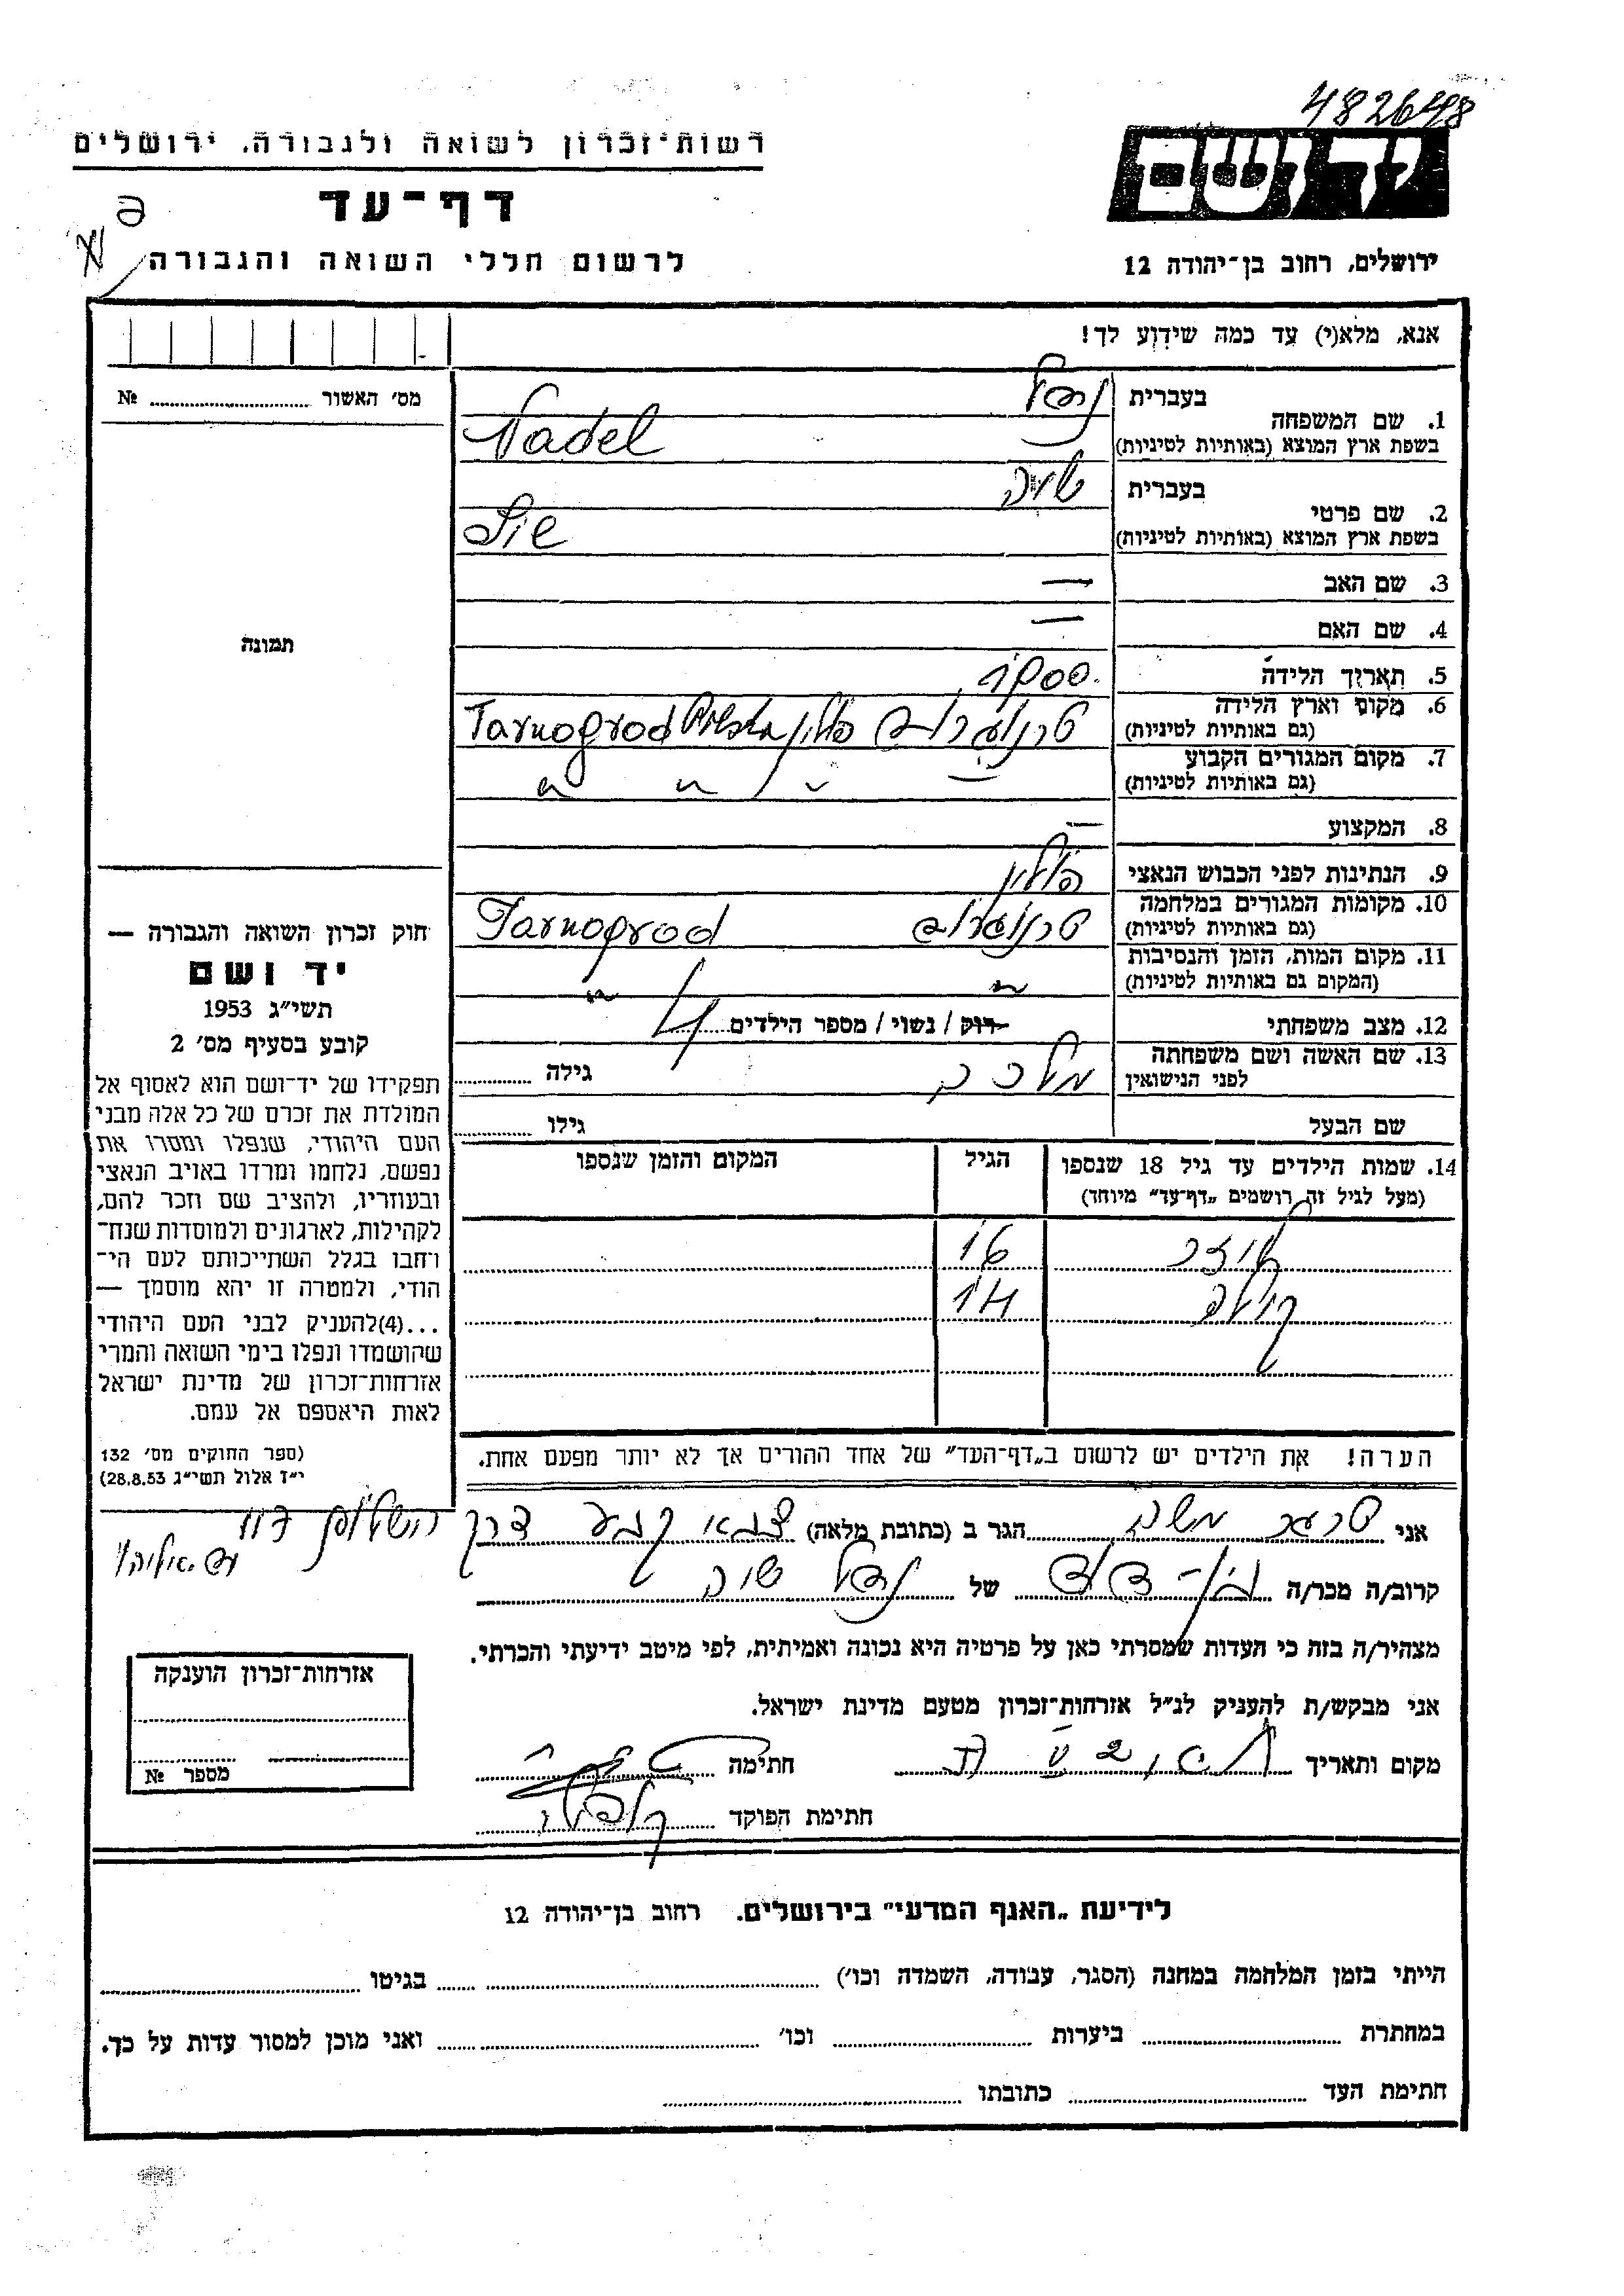 482648
רשות־זכרון לשואה ולגבורה, ירושלים
יד ושם
דף־עד
לרשום חללי השואה והגבורה
ירושלים, רחוב בן־יהודה 12
אנא, מלא(י) עד כמה שידוע לך!
מס׳ האשור № 
1. שם המשפחה
בעברית נדל
בשפת ארץ המוצא (באותיות לטיניות) Nadel
2. שם פרטי
בעברית
בשפת ארץ המוצא (באותיות לטיניות)
3. שם האב —
4. שם האם —
5. תאריך הלידה 1900.
6. מקום וארץ הלידה
(גם באותיות לטיניות) טרנוגרוד פולין Tarnogrod
7. מקום המגורים הקבוע
(גם באותיות לטיניות) " " " "
8. המקצוע —
9. הנתינות לפני הכבוש הנאצי פולין
10. מקומות המגורים במלחמה
(גם באותיות לטיניות) טרנוגרוד Tarnogrod
11. מקום המות, הזמן והנסיבות
(המקום גם באותיות לטיניות) " "
12. מצב משפחתי רוק / נשוי / מספר הילדים 4
13. שם האשה ושם משפחתה
לפני הנישואין מלכה גילה
שם הבעל גילו
14. שמות הילדים עד גיל 18 שנספו
(מעל לגיל זה רושמים „דף־עד״ מיוחד)
הגיל
המקום והזמן שנספו
16
14
הערה! את הילדים יש לרשום ב„דף־העד״ של אחד ההורים אך לא יותר מפעם אחת.
תמונה
חוק זכרון השואה והגבורה —
יד ושם
תשי״ג 1953
קובע בסעיף מס׳ 2
תפקידו של יד־ושם הוא לאסוף אל
המולדת את זכרם של כל אלה מבני
העם היהודי, שנפלו ומסרו את
נפשם, נלחמו ומרדו באויב הנאצי
ובעוזריו, ולהציב שם וזכר להם,
לקהילות, לארגונים ולמוסדות שנח־
רחבו בגלל השתייכותם לעם הי־
הודי, ולמטרה זו יהא מוסמך —
...(4)להעניק לבני העם היהודי
שהושמדו ונפלו בימי השואה והמרי
אזרחות־זכרון של מדינת ישראל
לאות היאספם אל עמם.
(ספר החוקים מס׳ 132
י״ז אלול תשי״ג 28.8.53)
אני משה הגר ב (כתובת מלאה) צבא קבע דרך השלום
קרוב/ה מכר/ה בן־דוד של נדל
מצהיר/ה בזה כי העדות שמסרתי כאן על פרטיה היא נכונה ואמיתית, לפי מיטב ידיעתי והכרתי.
אני מבקש/ת להעניק לנ״ל אזרחות־זכרון מטעם מדינת ישראל.
מקום ותאריך חתימה
חתימת הפוקד
אזרחות־זכרון הוענקה
מספר №
לידיעת „האגף המדעי״ בירושלים. רחוב בן־יהודה 12
הייתי בזמן המלחמה במחנה (הסגר, עבודה, השמדה וכו׳) בגיטו
במחתרת ביערות וכו׳ ואני מוכן למסור עדות על כך.
חתימת העד כתובתו